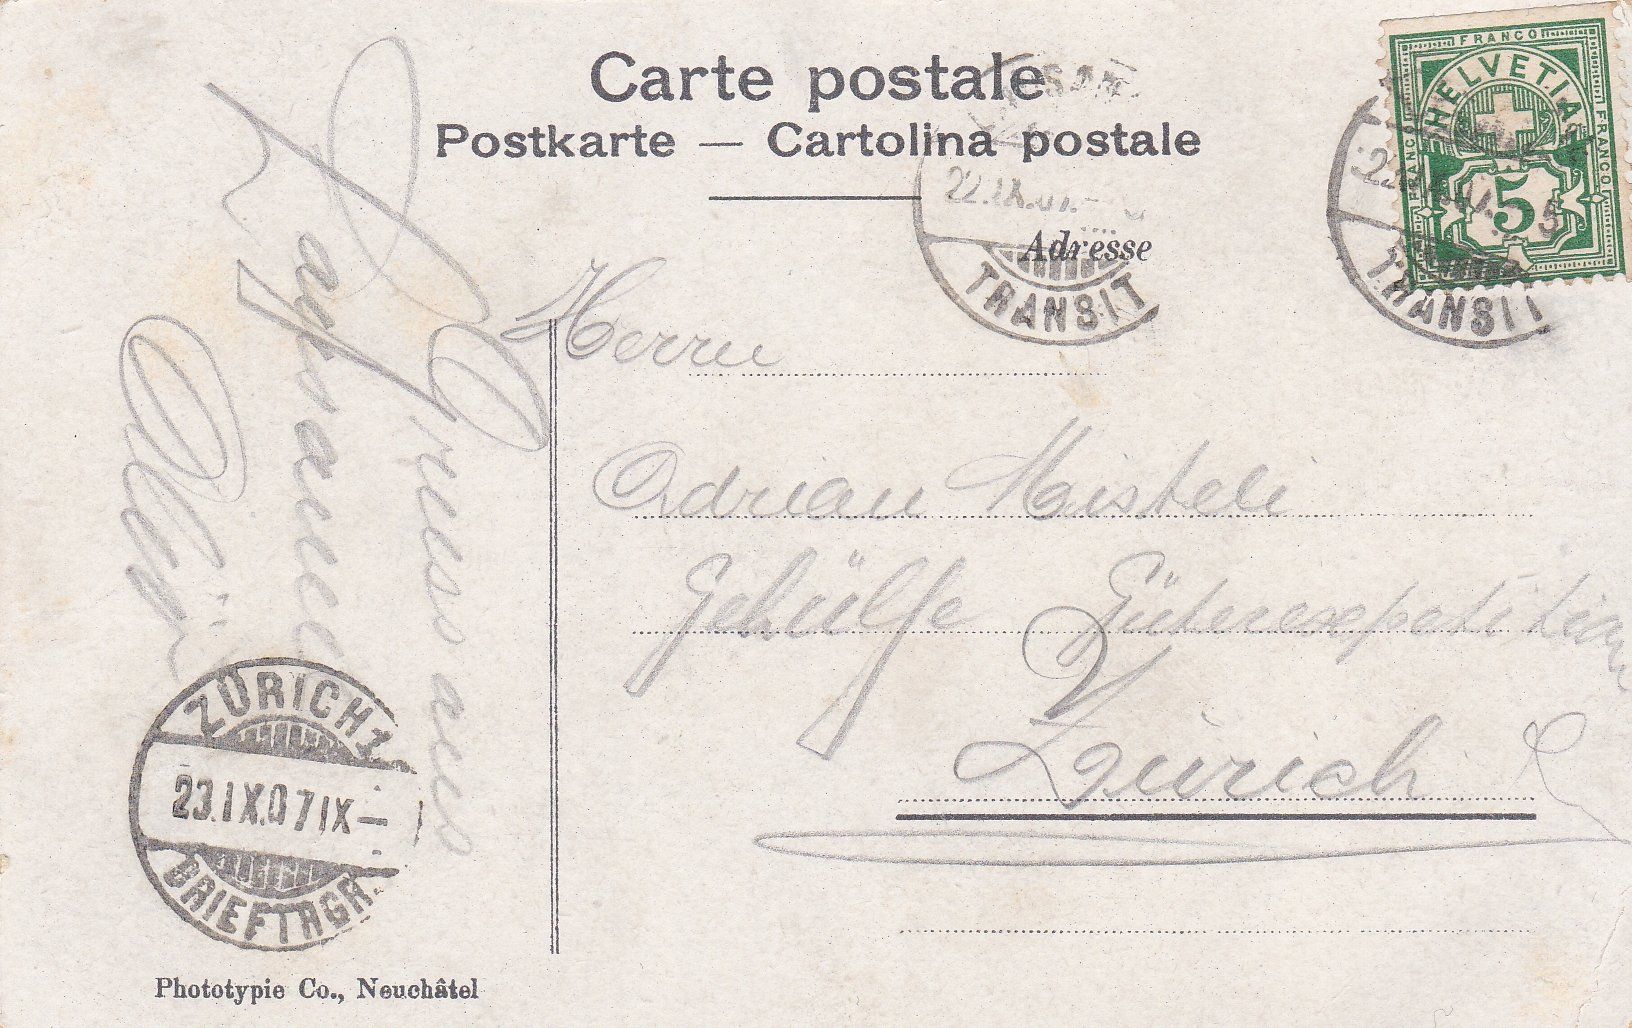 Carte postale
Postkarte — Cartolina postale
Adresse
FRANCO
HELVETIA
FRANCO
FRANCO
5
22.IX.07.
TRANSIT
TRANSIT
Herrn
Adrian Misteli
Gehülfe Güterexpedition
Zürich
Gruss aus
Lausanne
ZÜRICH 1
23.IX.07 IX—
BRIEFTRGR.
Phototypie Co., Neuchâtel